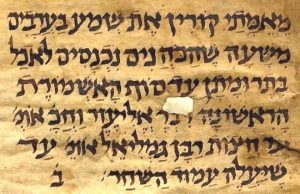 מאמתי קורין את שמע בערבים
משעה שהכהנים נכנסים לאכל
בתרומתן עד סוף האשמורת
הראשונה דבר אליעזר וחכ אומ׳
עד חצות רבן גמליאל אומ׳ עד
שיעלה עמוד השחר ב